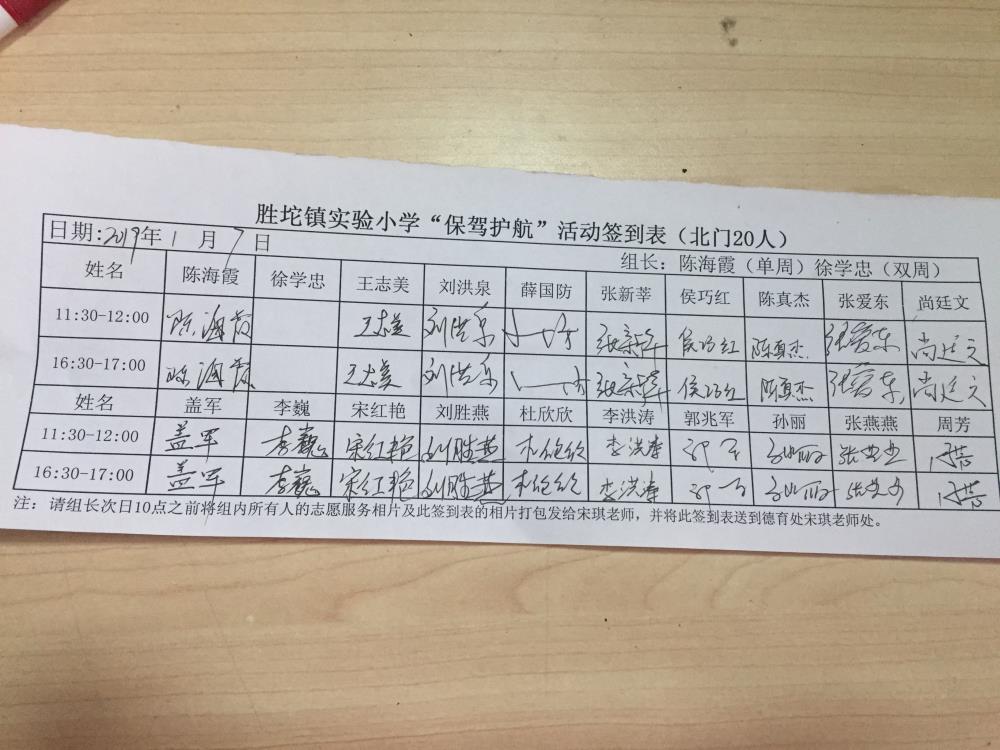 胜坨镇实验小学“保驾护航”活动签到表（北门20人）
日期:2019年1月7日
组长：陈海霞（单周）徐学忠（双周）
姓名 陈海霞 徐学忠 王志美 刘洪泉 薛国防 张新莘 侯巧红 陈真杰 张爱东 尚廷文
11:30-12:00 陈海霞 王志美 刘洪泉 张新莘 侯巧红 陈真杰 张爱东 尚廷文
16:30-17:00 陈海霞 王志美 刘洪泉 张新莘 侯巧红 陈真杰 张爱东 尚廷文
姓名 盖军 李巍 宋红艳 刘胜燕 杜欣欣 李洪涛 郭兆军 孙丽 张燕燕 周芳
11:30-12:00 盖军 李巍 宋红艳 刘胜燕 李洪涛 孙丽
16:30-17:00 盖军 李巍 宋红艳 刘胜燕 李洪涛 孙丽
注：请组长次日10点之前将组内所有人的志愿服务相片及此签到表的相片打包发给宋琪老师，并将此签到表送到德育处宋琪老师处。